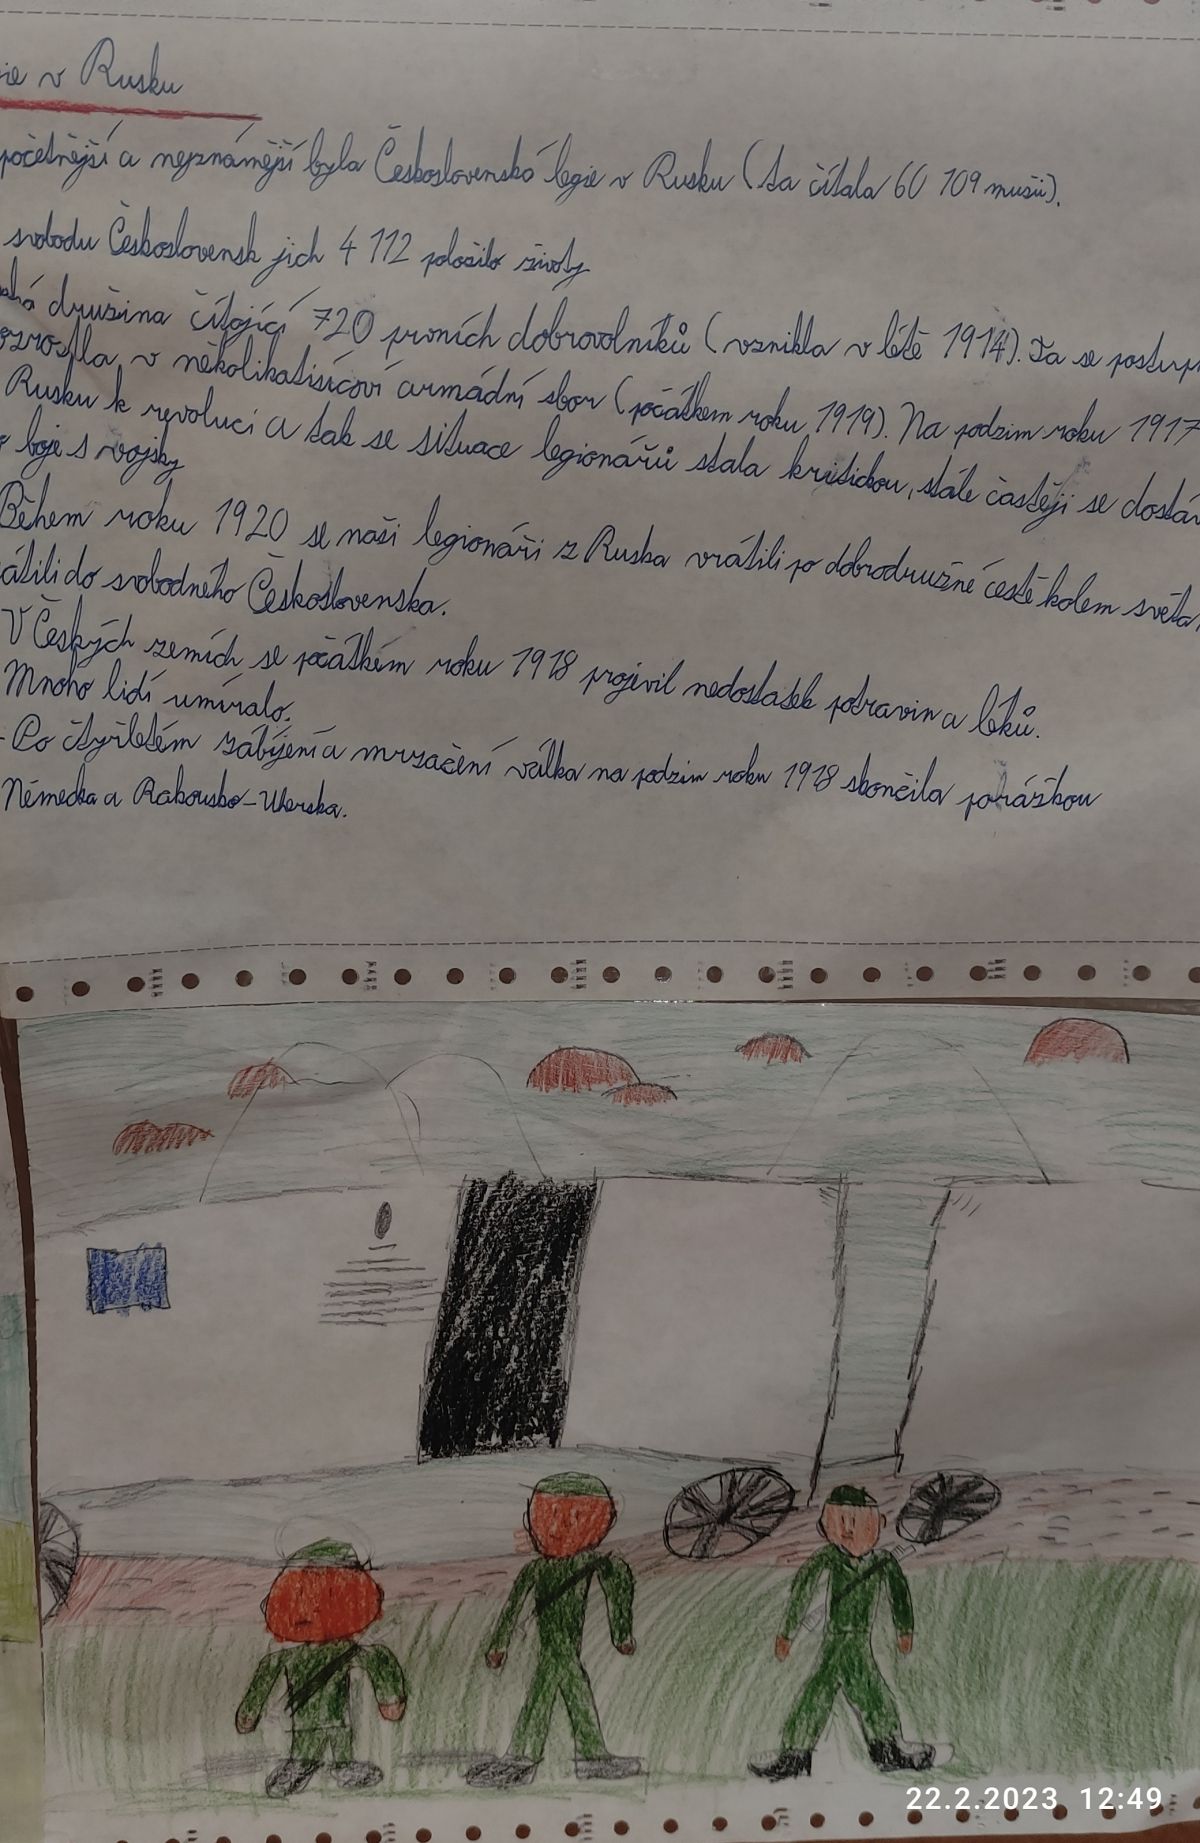 ie v Rusku
početnější a nejznámější byla Československá legie v Rusku (ta čítala 60 109 mužů).
svobodu Československ jich 4 112 položilo životy
ská družina čítající 720 prvních dobrovolníků (vznikla v létě 1914). Ta se postupn
ozrostla v několikatisícoví armádní sbor (počátkem roku 1919). Na podzim roku 1917
Rusku k revoluci a tak se situace legionářů stala kritickou, stále častěji se dostáv
boje s vojsky
Během roku 1920 se naši legionáři z Ruska vrátili po dobrodružné cestě kolem světa.
átili do svobodného Československa.
V Českých zemích se počátkem roku 1918 projevil nedostatek potravin a léků.
Mnoho lidí umíralo.
- Po čtyřletém zabíjení a mrzačení válka na podzim roku 1918 skončila porážkou
Německa a Rakousko-Uherska.
22.2.2023 12:49